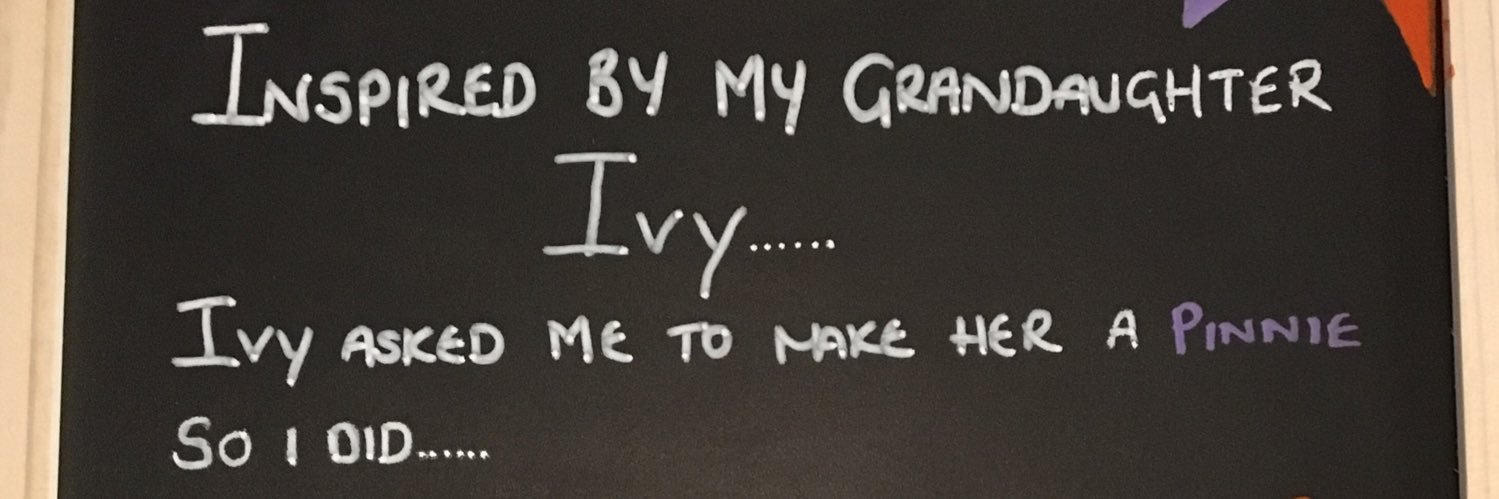 INSPIRED BY MY GRANDAUGHTER
IVY......
IVY ASKED ME TO MAKE HER A PINNIE
SO I DID......